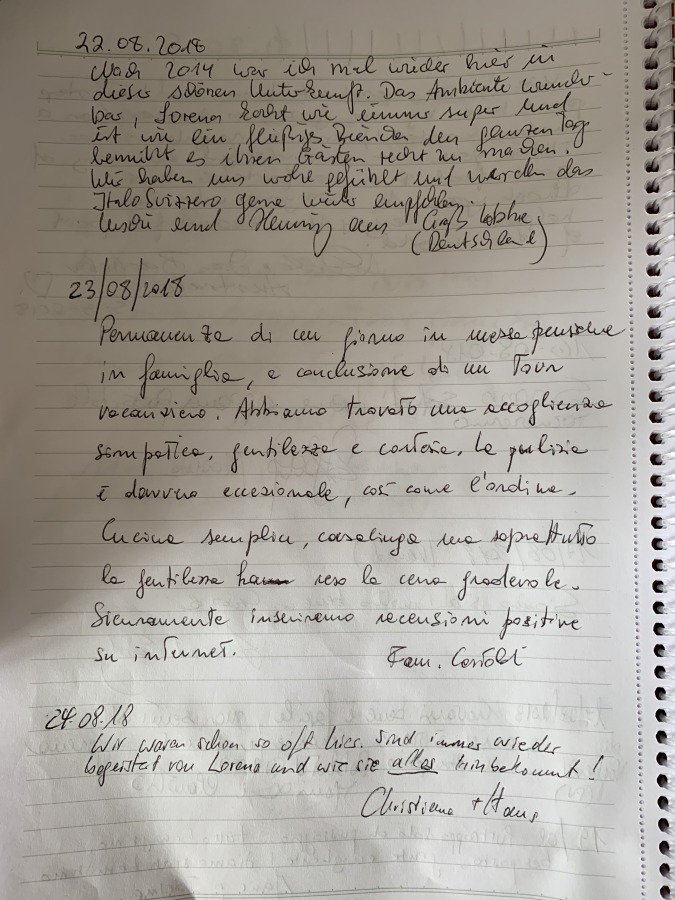 22.08.2018
Nach 2014 war ich mal wieder hier in
dieser schönen Unterkunft. Das Ambiente wunder-
bar, Lorena kocht wie immer super und
ist wie ein fleißiges Bienchen den ganzen Tag
bemüht es ihren Gästen recht zu machen.
Wir haben uns wohl gefühlt und werden das
Italo Svizzero gerne weiter empfehlen.
und Henning aus Groß
(Deutschland)
23/08/2018
Permanenza di un giorno in mezza pensione
in famiglia, a conclusione di un Tour
vacanziero. Abbiamo trovato una accoglienza
simpatica, gentilezza e cortesia, la pulizia
è davvero eccezionale, così come l'ordine.
Cucina semplice, casalinga ma soprattutto
la gentilezza ha reso la cena gradevole.
Sicuramente inseriremo recensioni positive
su internet. Fam.
24.08.18
Wir waren schon so oft hier. Sind immer wieder
begeistert von Lorena und wie sie alles hinbekommt!
Christiane + Hans